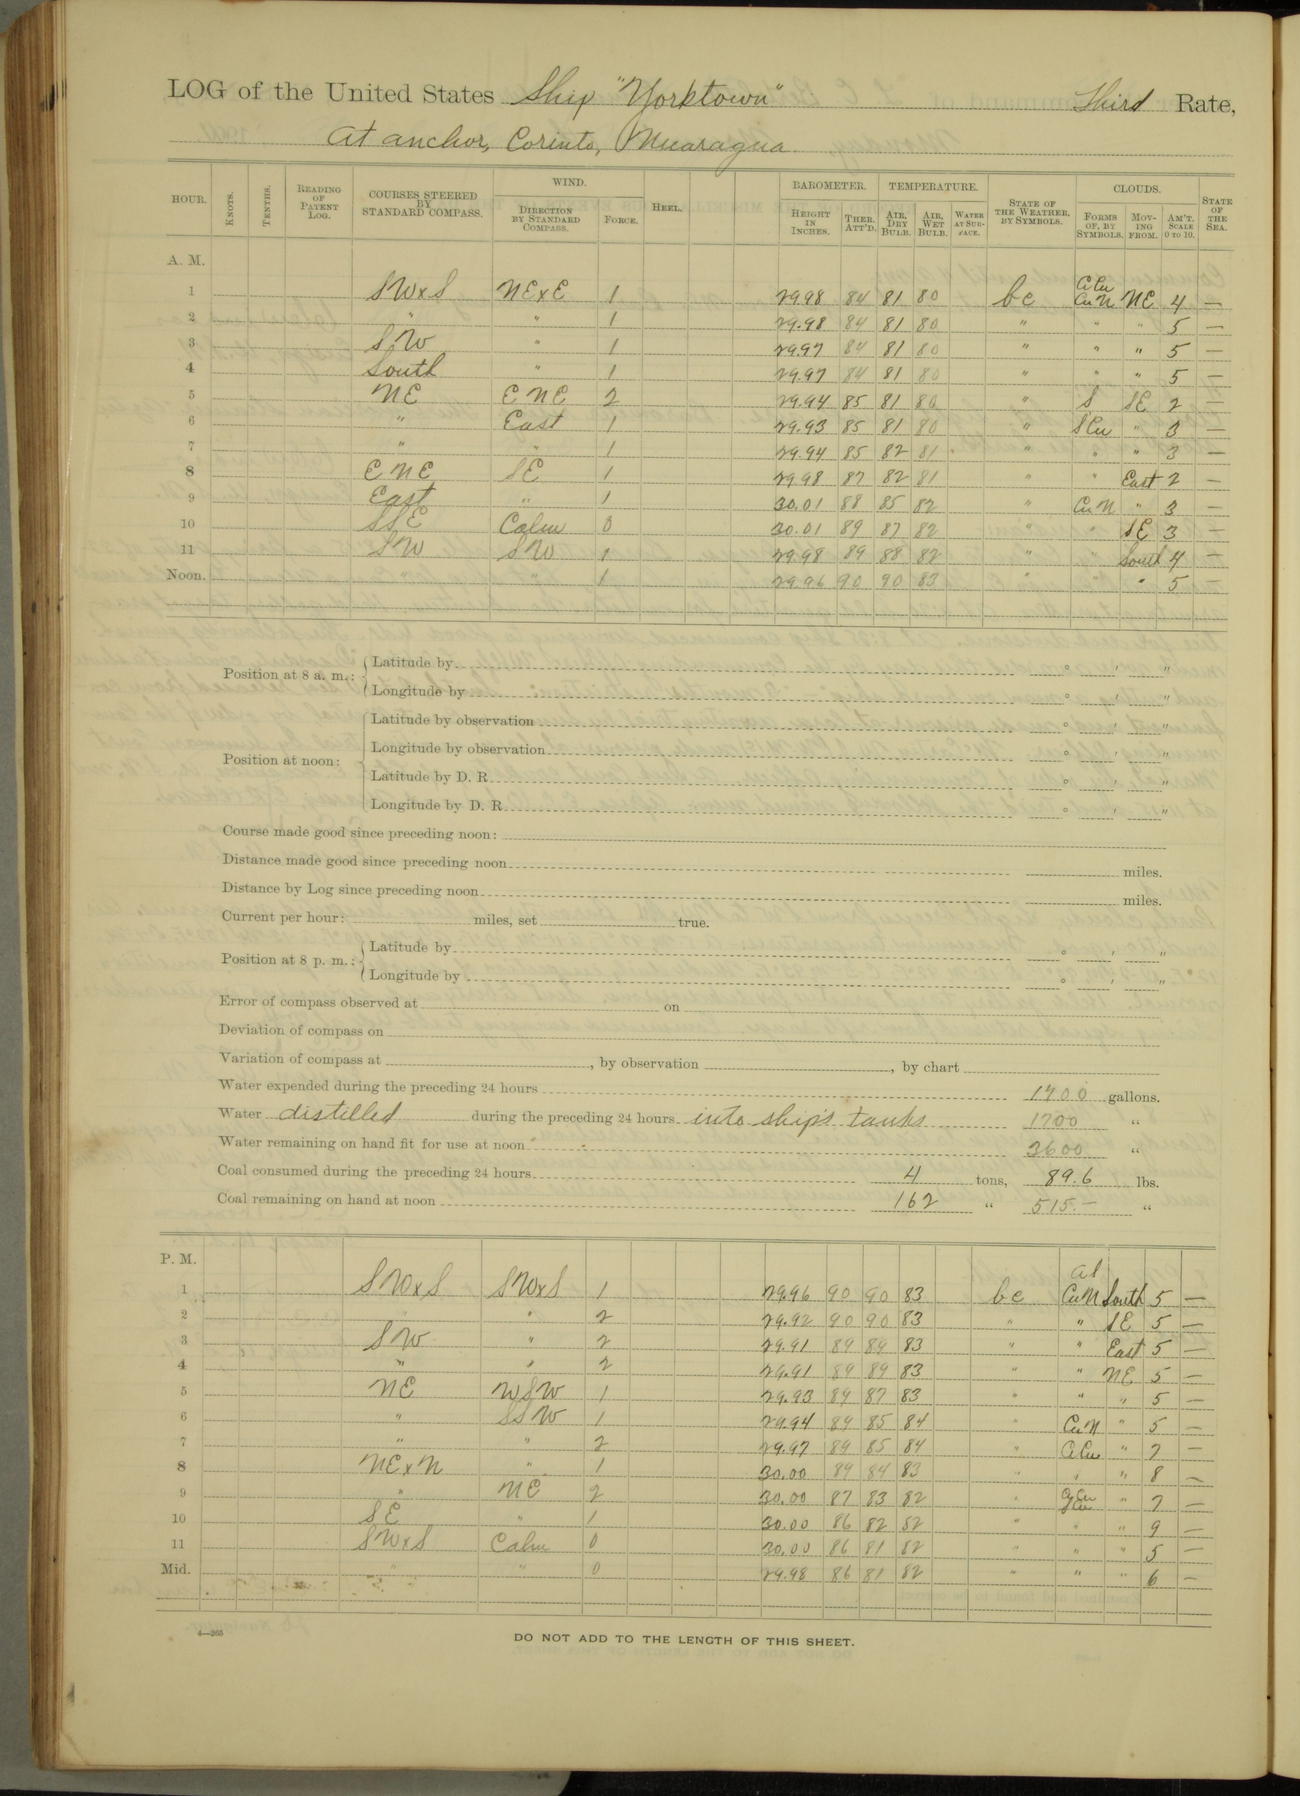 LOG of the United States Ship "Yorktown" Third Rate,
At anchor, Corinto, Nicaragua
HOUR. KNOTS. TENTHS. READING OF PATENT LOG. COURSES STEERED BY STANDARD COMPASS. WIND. DIRECTION BY STANDARD COMPASS. FORCE. HEEL. BAROMETER. HEIGHT IN INCHES. THER. ATT'D. TEMPERATURE. AIR, DRY BULB. AIR, WET BULB. WATER AT SURFACE. STATE OF THE WEATHER, BY SYMBOLS. CLOUDS. FORMS OF, BY SYMBOLS. MOVING FROM. AM'T. SCALE 0 TO 10. STATE OF THE SEA.
A. M.
1 SWxS NExE 1 29.98 84 81 80 bc CiCu CuN NE 4 —
2 " " 1 29.98 84 81 80 " " " 5 —
3 SW " 1 29.97 84 81 80 " " " 5 —
4 South " 1 29.97 84 81 80 " " " 5 —
5 NE ENE 2 29.94 85 81 80 " S SE 2 —
6 " East 1 29.93 85 81 80 " SCu " 3 —
7 " " 1 29.94 85 82 81 " " " 3 —
8 ENE SE 1 29.98 87 82 81 " " East 2 —
9 East " 1 30.01 88 85 82 " CuN " 3 —
10 SSE Calm 0 30.01 89 87 82 " " SE 3 —
11 SW SW 1 29.98 89 88 82 " " South 4 —
Noon. " " 1 29.96 90 90 83 " " " 5 —
Position at 8 a. m.: Latitude by ° ' "
Longitude by ° ' "
Position at noon: Latitude by observation ° ' "
Longitude by observation ° ' "
Latitude by D. R. ° ' "
Longitude by D. R. ° ' "
Course made good since preceding noon:
Distance made good since preceding noon miles.
Distance by Log since preceding noon miles.
Current per hour: miles, set true.
Position at 8 p. m.: Latitude by ° ' "
Longitude by ° ' "
Error of compass observed at on
Deviation of compass on
Variation of compass at , by observation , by chart
Water expended during the preceding 24 hours 1700 gallons.
Water distilled during the preceding 24 hours into ship's tanks 1700 "
Water remaining on hand fit for use at noon 3600 "
Coal consumed during the preceding 24 hours 4 tons, 89.6 lbs.
Coal remaining on hand at noon 162 " 515.— "
P. M.
1 SWxS SWxS 1 29.96 90 90 83 bc CuN South 5 —
2 " " 2 29.92 90 90 83 " " SE 5 —
3 SW " 2 29.91 89 89 83 " " East 5 —
4 " " 2 29.91 89 89 83 " " NE 5 —
5 NE WSW 1 29.93 89 87 83 " " " 5 —
6 " SSW 1 29.94 89 85 84 " CuN " 5 —
7 " " 2 29.97 89 85 84 " CiCu " 7 —
8 NExN " 1 30.00 89 84 83 " " " 8 —
9 " NE 2 30.00 87 83 82 " " 7 —
10 SE " 1 30.00 86 82 82 " " " 9 —
11 SWxS Calm 0 30.00 86 81 82 " " " 5 —
Mid. " " 0 29.98 86 81 82 " " " 6 —
4—265
DO NOT ADD TO THE LENGTH OF THIS SHEET.